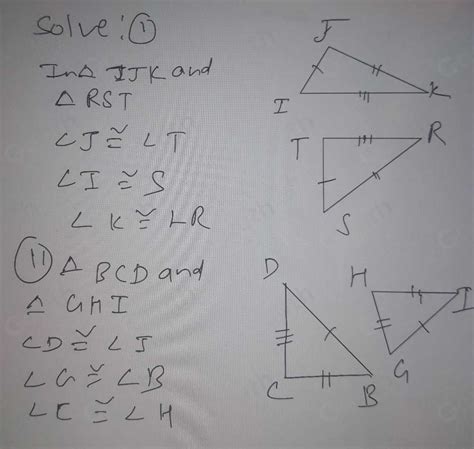 Solve: ①
In △ IJK and
△ RST
∠J ≅ ∠T
∠I ≅ S
∠K ≅ ∠R
⑪ △ BCD and
△ GHI
∠D ≅ ∠I
∠G ≅ ∠B
∠C ≅ ∠H
J
I
K
T
R
S
D
C
B
H
I
G